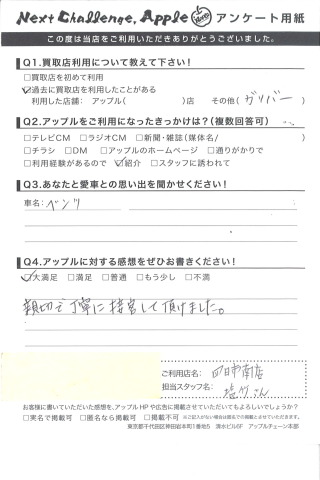 Next Challenge, Apple アンケート用紙
この度は当店をご利用いただきありがとうございました。
Q1.買取店利用について教えて下さい!
□買取店を初めて利用
☑過去に買取店を利用したことがある
利用した店舗: アップル( )店 その他(ガリバー)
Q2.アップルをご利用になったきっかけは?(複数回答可)
□テレビCM □ラジオCM □新聞・雑誌(媒体名/ )
□チラシ □DM □アップルのホームページ □通りがかりで
□利用経験があるので ☑紹介 □スタッフに誘われて
Q3.あなたと愛車との思い出を聞かせください!
車名: ベンツ
Q4.アップルに対する感想をぜひお書きください!
☑大満足 □満足 □普通 □もう少し □不満
親切で丁寧に接客して頂けました。
ご利用店名: 四日市南店
担当スタッフ名: 塩竹さん
お客様に書いていただいた感想を、アップルHPや広告に掲載させていただいてもよろしいでしょうか?
□実名で掲載可 □匿名なら掲載可 □掲載不可 ※ご記入がない場合は匿名での掲載とさせていただきます。
東京都千代田区神田岩本町1番地5 清水ビル6F アップルチェーン本部